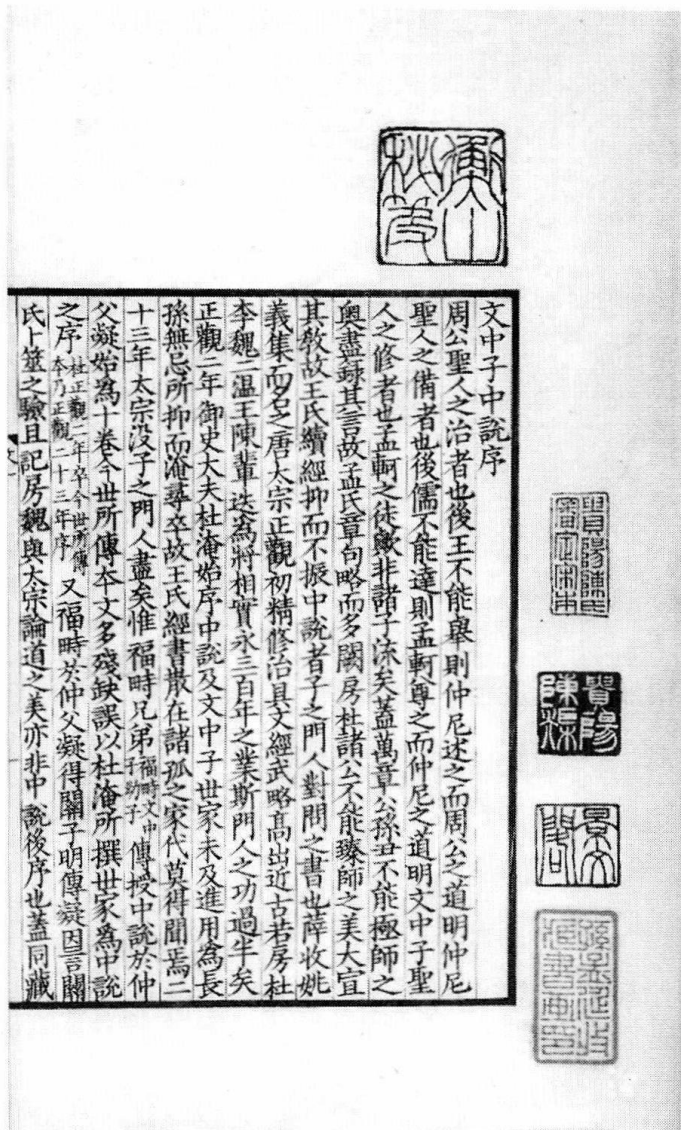 文中子中說序
周公聖人之治者也後王不能舉則仲尼述之而周公之道明仲尼
聖人之備者也後儒不能達則孟軻尊之而仲尼之道明文中子聖
人之修者也孟軻之徒歟非諸子流矣蓋萬章公孫丑不能極師之
奧盡錄其言故孟氏章句略而多闕房杜諸公不能臻師之美大宣
其教故王氏續經抑而不振中說者子之門人對問之書也薛收姚
義集而名之唐太宗正觀初精修治具文經武略高出近古若房杜
李魏二温王陳輩迭為將相實永三百年之業斯門人之功過半矣
正觀二年御史大夫杜淹始序中說及文中子世家未及進用為長
孫無忌所抑而淹尋卒故王氏經書散在諸孤之家代莫得聞焉二
十三年太宗没子之門人盡矣惟福畤兄弟福畤文中子㓜子傳授中說於仲
父凝始為十卷今世所傳本文多殘缺誤以杜淹所撰世家為中說
之序杜正觀二年卒今世所傳本乃正觀二十三年序又福畤於仲父凝得關子明傳凝因言關
氏卜筮之驗且記房魏與太宗論道之美亦非中說後序也蓋同藏
貴陽陳氏審定宋本
貴陽陳